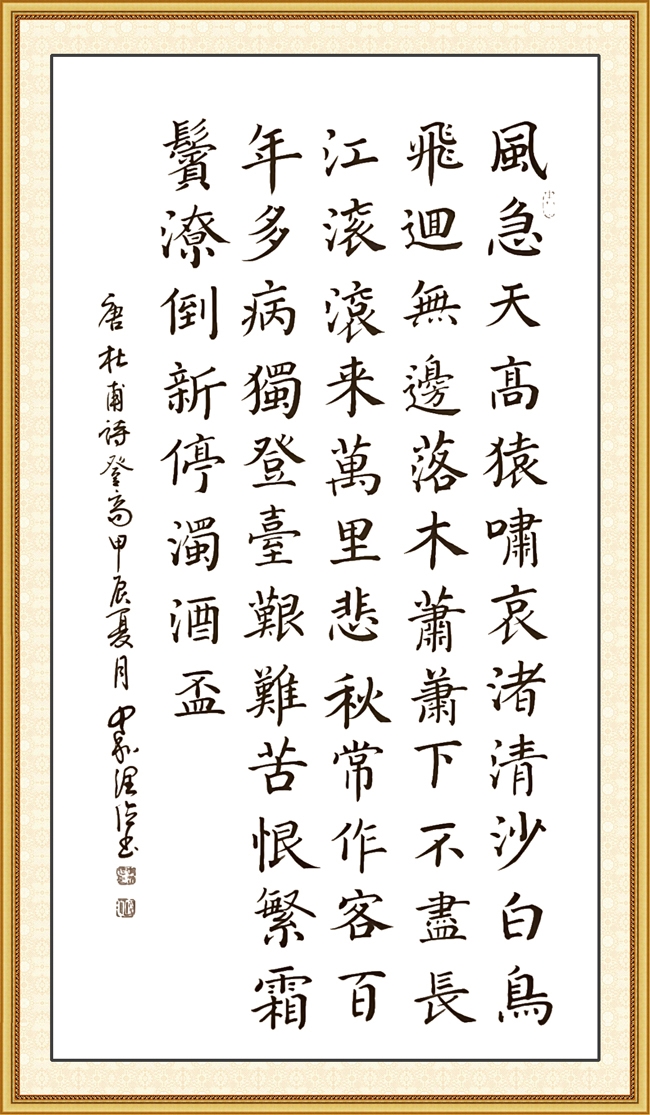 風急天高猿嘯哀渚清沙白鳥
飛迴無邊落木蕭蕭下不盡長
江滚滾来萬里悲秋常作客百
年多病獨登臺艱難苦恨繁霜
鬢潦倒新停濁酒盃
唐杜甫詩登高甲辰夏月